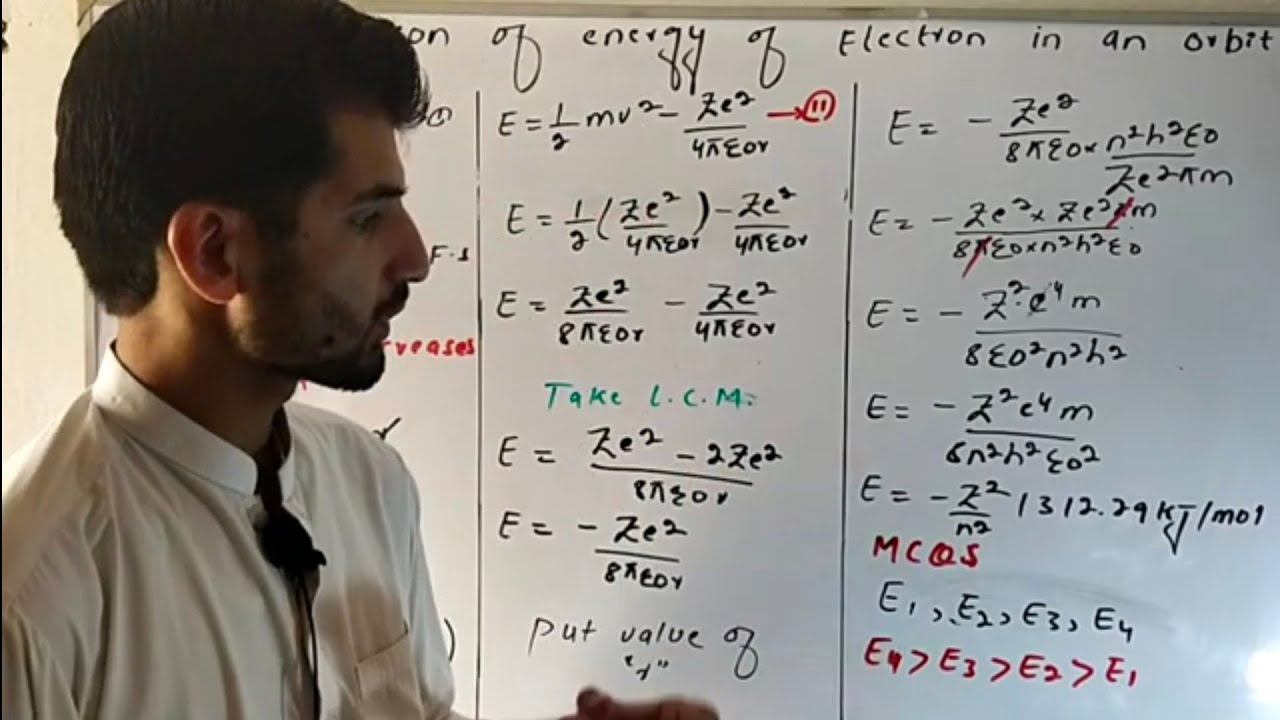 on of energy of Electron in an orbit
①
F.1
reases
E = 1/2 mv² - Ze²/4πε0r → (11)
E = 1/2 (Ze²/4πε0r) - Ze²/4πε0r
E = Ze²/8πε0r - Ze²/4πε0r
Take L.C.M:
E = Ze² - 2Ze²/8πε0r
E = -Ze²/8πε0r
Put value of
"r"
E = - Ze²/8πε0 × n²h²ε0/Ze²πm
E = - Ze² × Ze²πm/8πε0×n²h²ε0
E = - Z²e⁴m/8ε0²n²h²
E = - Z²e⁴m/8n²h²ε0²
E = - Z²/n² 1312.29 kJ/mol
MCQS
E1, E2, E3, E4
E4 > E3 > E2 > E1